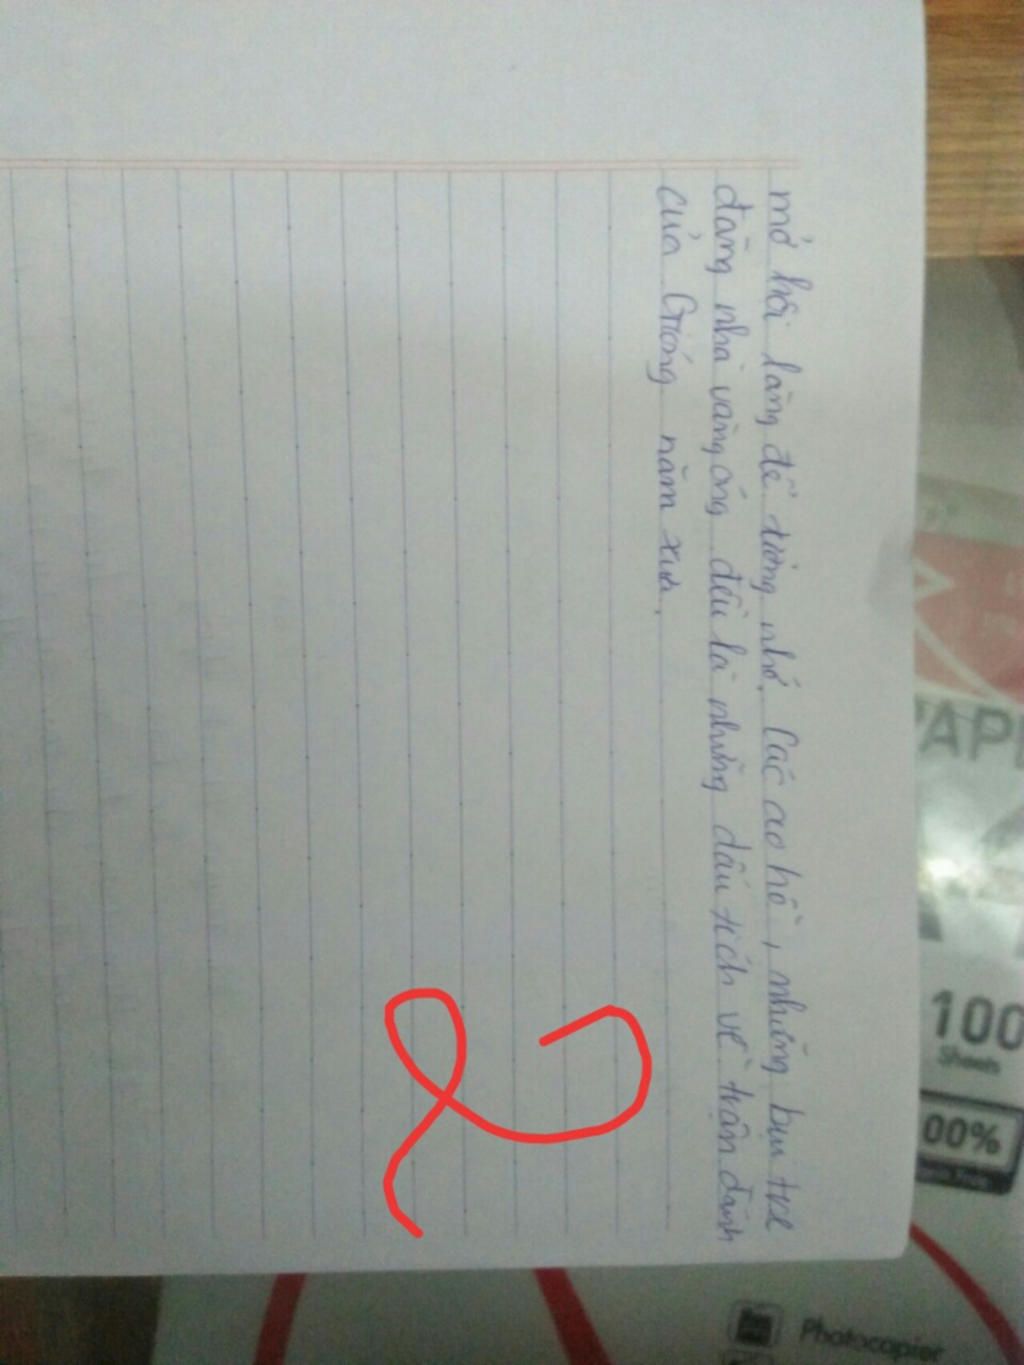 mở hội làng để tưởng nhớ. Các ao hồ, những bụi tre
đằng nhà vàng óng đều là những dấu tích về trận đánh
của Gióng năm xưa.
2
PAP
100
Sheets
00%
Photocopier